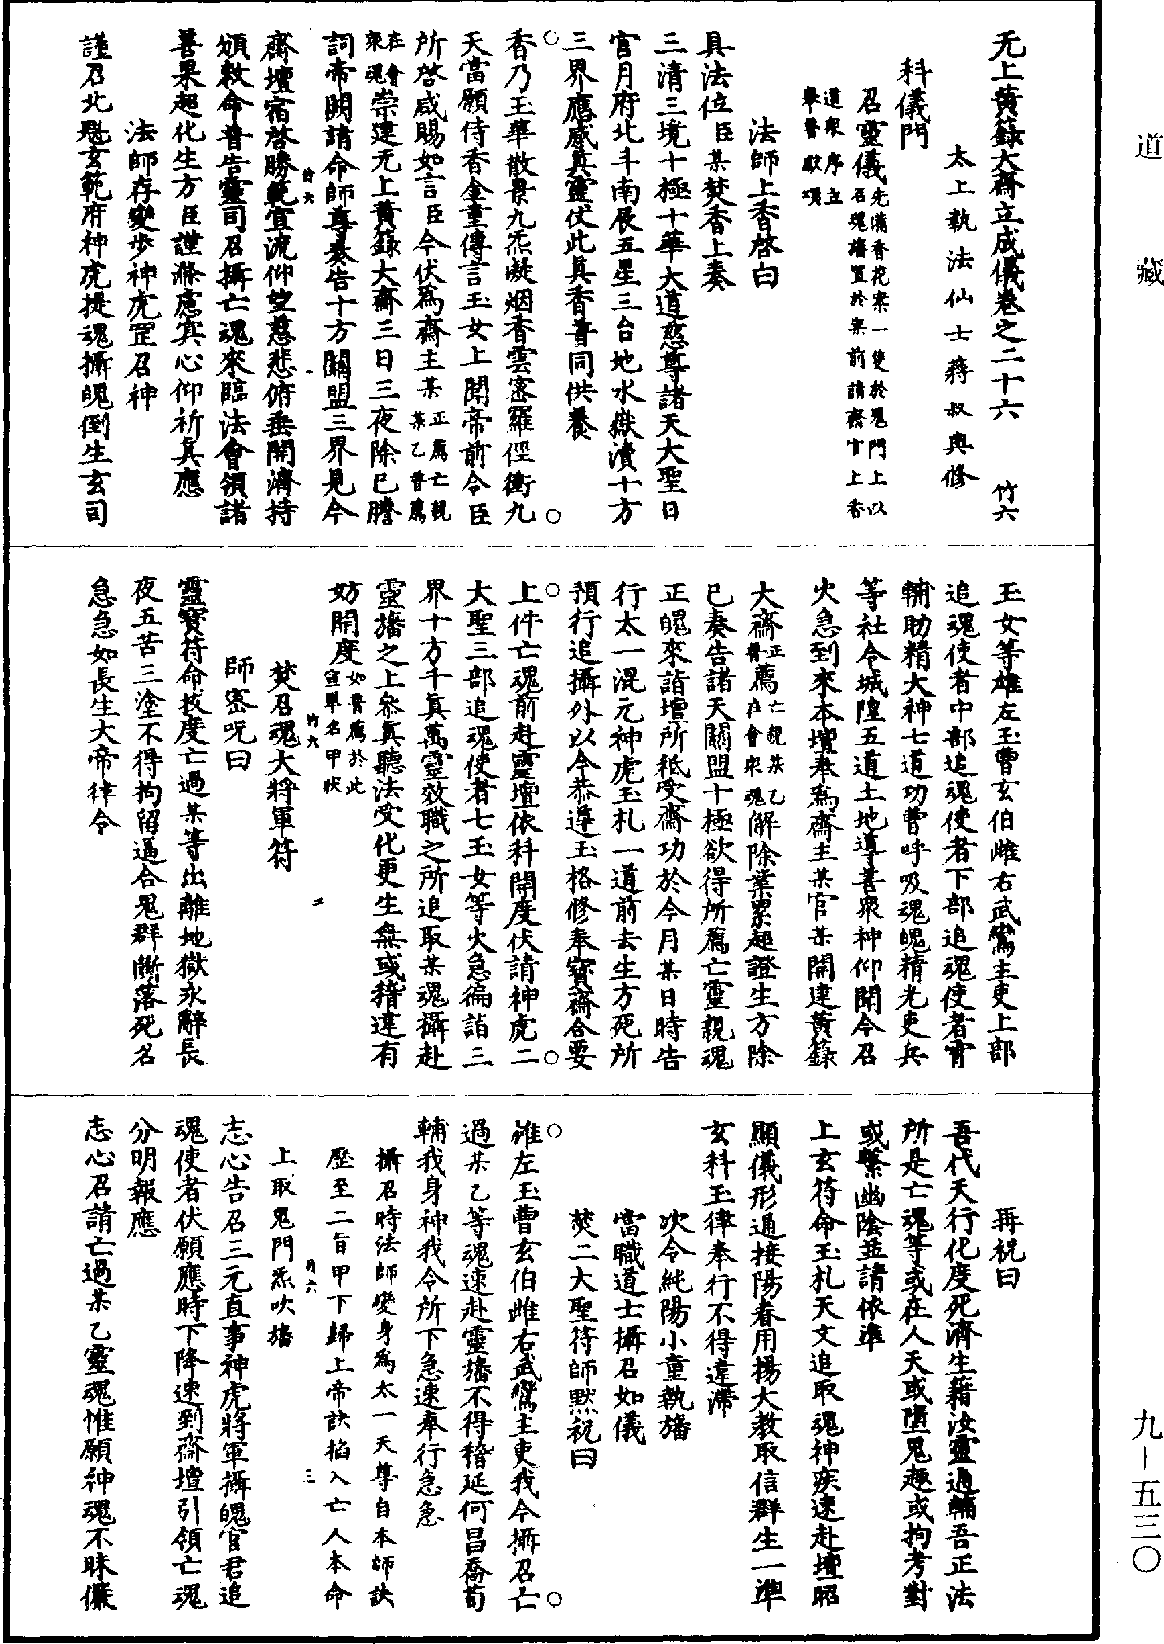 道藏
无上黃籙大齋立成儀卷之二十六 竹六
太上執法仙士蔣叔輿修
科儀門
召靈儀先備香花案一隻於鬼門上以召魂旛置於案前請齋官上香
道眾序立舉普獻頌
法師上香啓白
具法位臣某焚香上奏
三清三境十極十華大道慈尊諸天大聖日
宮月府北斗南辰五星三台地水嶽瀆十方
三界應感真靈伏此真香普同供養
香乃玉華散景九炁凝烟香雲密羅徑衝九
天當願侍香金童傳言玉女上聞帝前令臣
所啓咸賜如言臣今伏爲齋主某正薦亡親某乙普薦
在會衆魂崇建无上黃籙大齋三日三夜除已謄
詞帝闕請命師尊奏告十方關盟三界見今
齋壇宿啓勝範宣流仰望慈悲俯垂開濟持
頒敕命普告靈司召攝亡魂來臨法會領諸
善果超化生方臣謹滌慮寘心仰祈真應
法師存變步神虎罡召神
謹召北魁玄範府神虎提魂攝魄倒生玄司
玉女等雄左玉曹玄伯雌右武鸞主吏上部
追魂使者中部追魂使者下部追魂使者宵
輔助精大神七道功曹呼吸魂魄精光吏兵
等社令城隍五道土地導善眾神仰聞今召
火急到來本壇奉爲齋主某官某開建黃籙
大齋正普薦亡親某乙在會衆魂解除業累超證生方除
已奏告諸天關盟十極欲得所薦亡靈親魂
正魄來詣壇所祇受齋功於今月某日時告
行太一混元神虎玉札一道前去生方死所
預行追攝外以今恭遵玉格修奉寳齋合要
上件亡魂前赴靈壇依科開度伏請神虎二
大聖三部追魂使者七玉女等火急徧詣三
界十方千真萬靈效職之所追取某魂攝赴
靈旛之上叅真聽法受化更生無或稽違有
妨開度如普薦於此宣單名甲狀
焚召魂大將軍符
師密呪曰
靈寳符命拔度亡過某等出離地獄永辭長
夜五苦三塗不得拘留逼合鬼群斷落死名
急急如長生大帝律令
再祝曰
吾代天行化度死濟生籍汝靈通輔吾正法
所是亡魂等或在人天或墮鬼趣或拘考對
或繫幽陰並請依準
上玄符命玉札天文追取魂神疾速赴壇昭
顯儀形通接陽眷用揚大教取信群生一準
玄科玉律奉行不得違滯
次令純陽小童執旛
當職道士攝召如儀
焚二大聖符師默祝曰
雄左玉曹玄伯雌右武鸞主吏我令攝召亡
過某乙等魂速赴靈旛不得稽延何昌喬荀
輔我身神我令所下急速奉行急急
攝召時法師變身爲太一天尊自本師訣
歷至二盲甲下歸上帝訣掐入亡人本命
上取鬼門炁吹旛
志心告召三元直事神虎將軍攝魄官君追
魂使者伏願應時下降速到齋壇引領亡魂
分明報應
志心召請亡過某乙靈魂惟願神魂不昧儼
九－五三〇